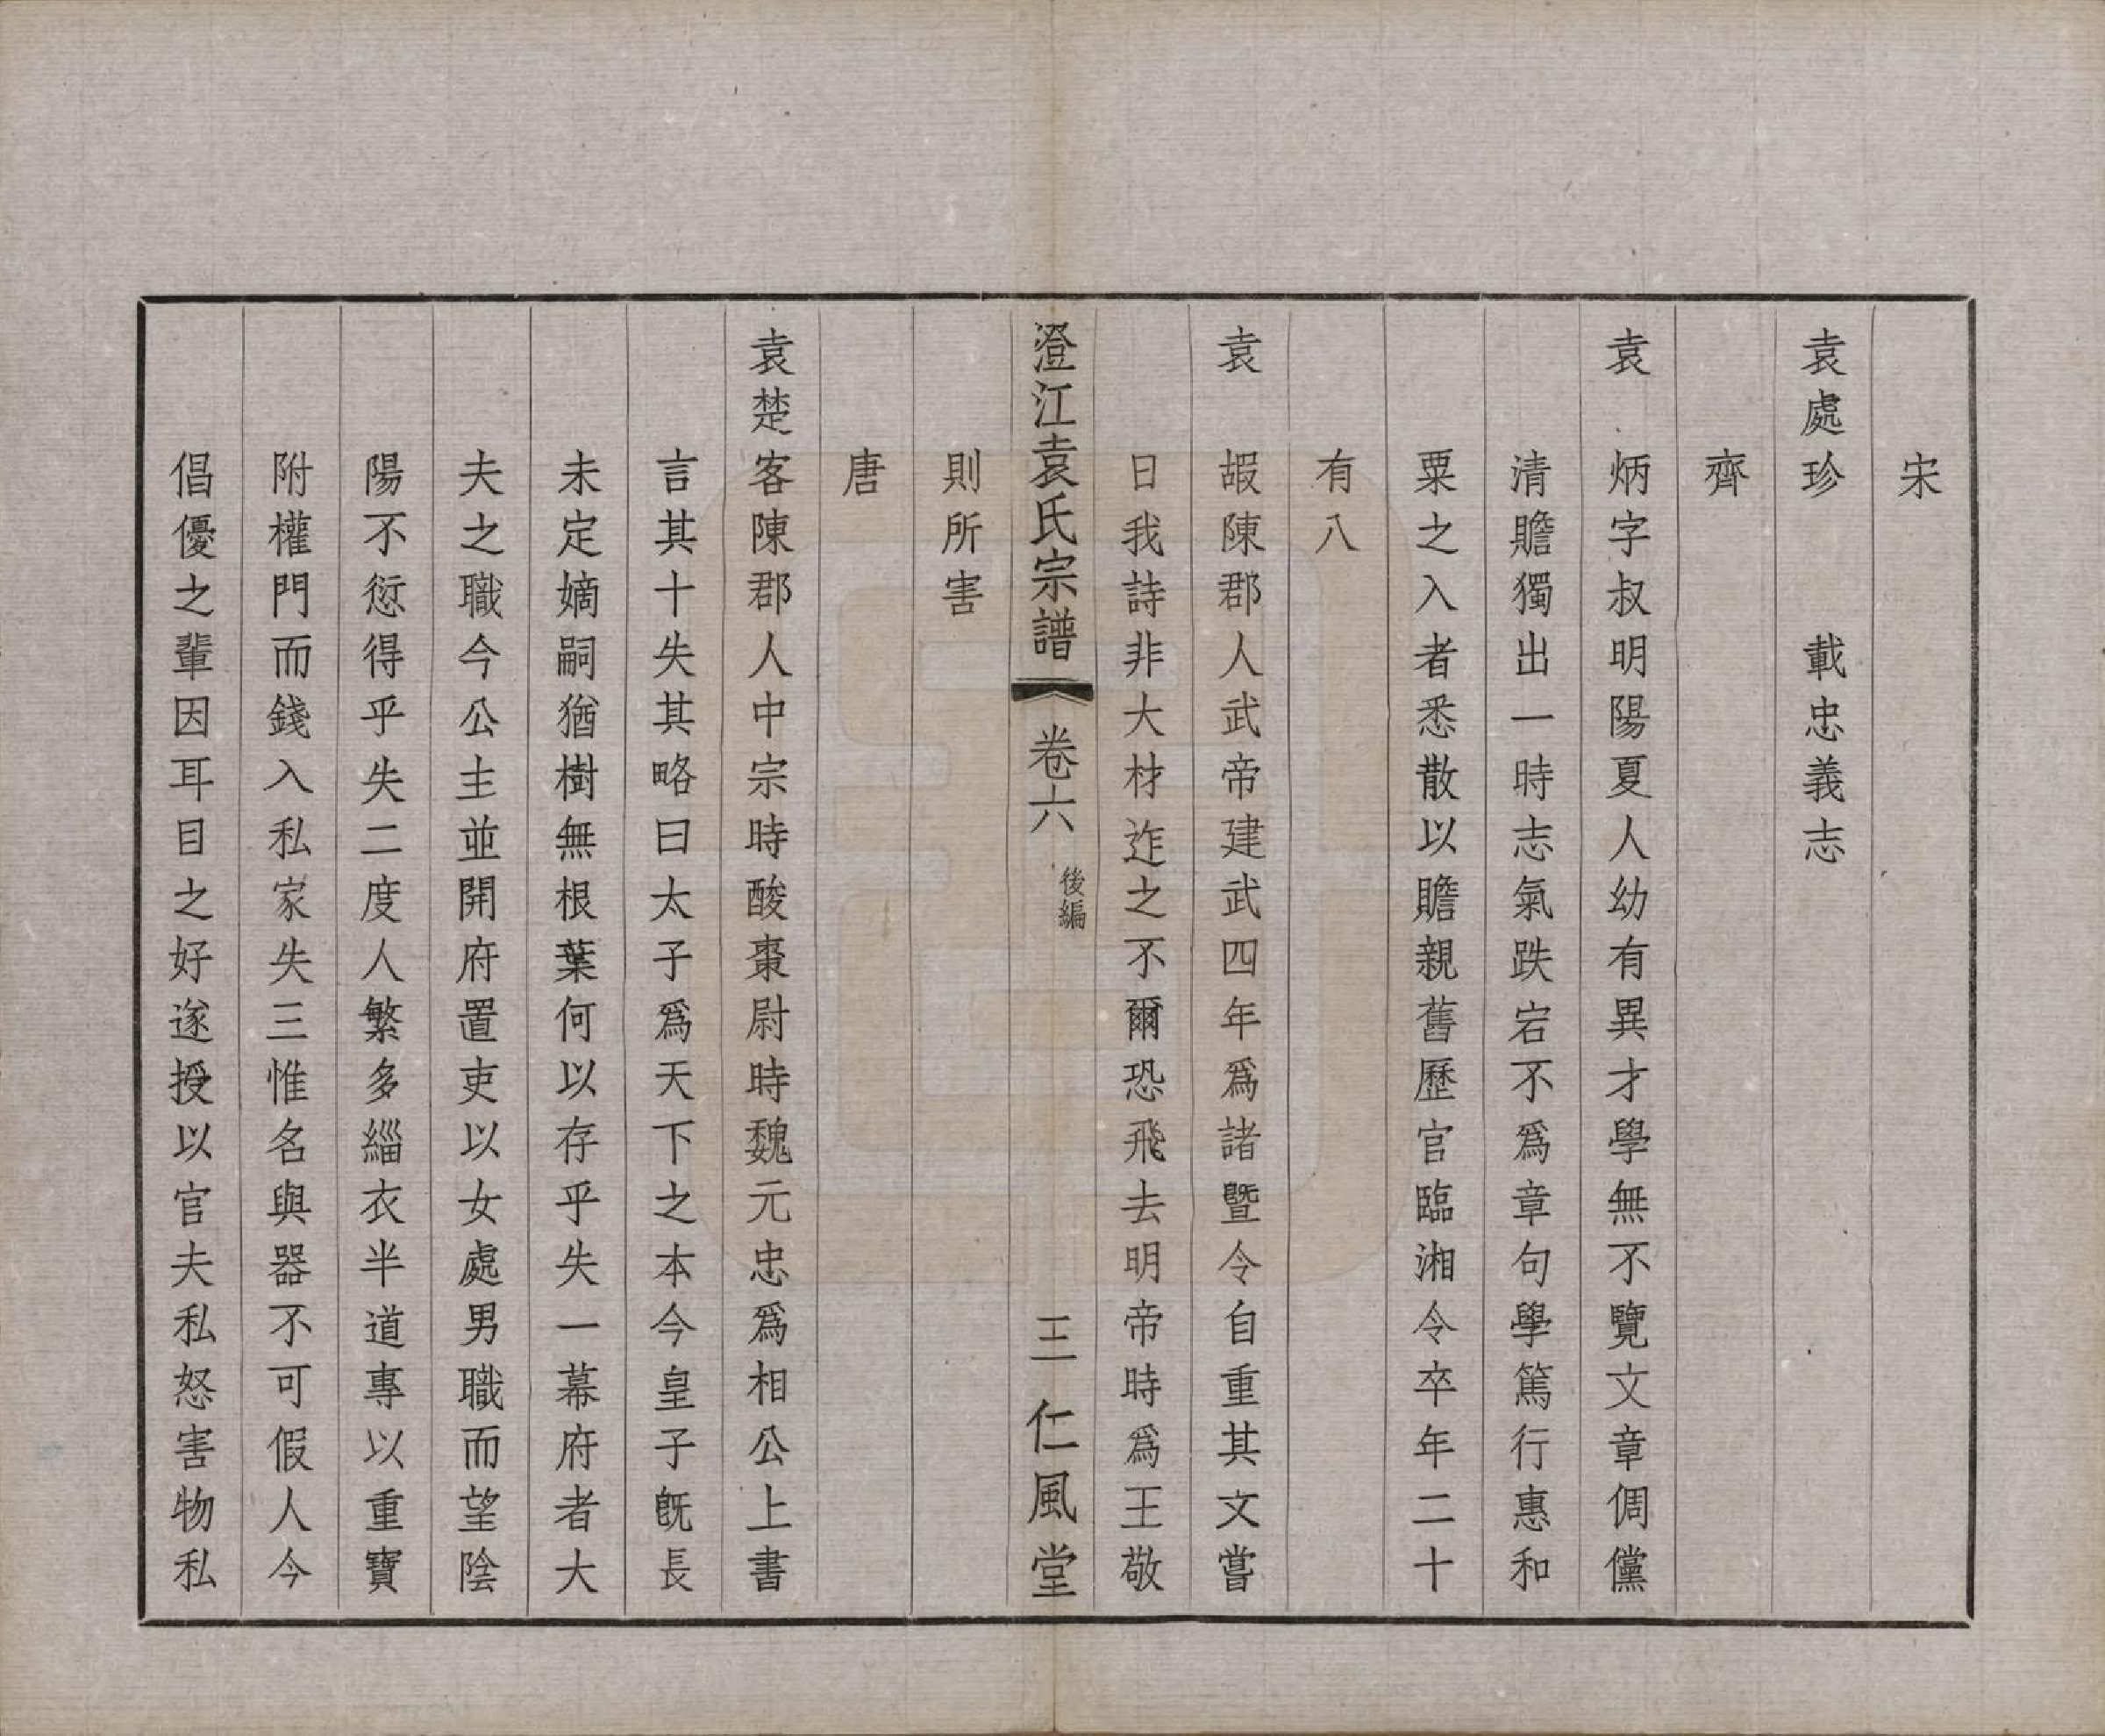 宋
袁處珍 載忠義志
齊
袁 炳字叔明陽夏人幼有異才學無不覽文章倜儻
清贍獨出一時志氣跌宕不爲章句學篤行惠和
粟之入者悉散以贍親舊歷官臨湘令卒年二十
有八
袁 嘏陳郡人武帝建武四年爲諸暨令自重其文嘗
日我詩非大材迮之不爾恐飛去明帝時爲王敬
澄江袁氏宗譜 卷六 後編 三 仁風堂
則所害
唐
袁楚客陳郡人中宗時酸棗尉時魏元忠爲相公上書
言其十失其略曰太子爲天下之本今皇子旣長
未定嫡嗣猶樹無根葉何以存乎失一幕府者大
夫之職今公主並開府置吏以女處男職而望陰
陽不愆得乎失二度人繁多緇衣半道專以重寶
附權門而錢入私家失三惟名與器不可假人今
倡優之輩因耳目之好遂授以官夫私怒害物私